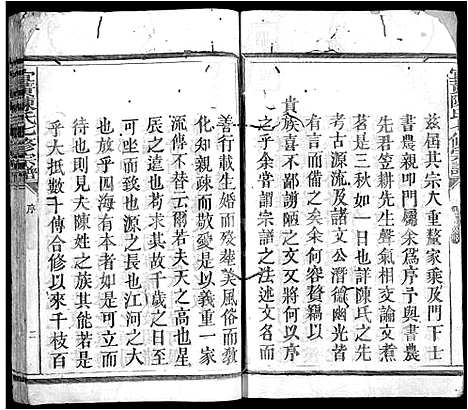 茲屆其宗大重鰲家乘及門下士
書農親叩門屬余爲序予與書農
先君笠耕先生聲氣相交論文煮
茗是三秋如一日也詳陳氏之先
考古源流及諸文公潛德幽光皆
有所言以
貴族喜不鄙謝陋之文將何以序
之乎余嘗謂宗譜之法述文名而
善行載生婚而歿葬美風俗而敎
化知親疎而敬愛是以義重一家
流傳不替云爾若夫天之高也星
辰之遠也苟求其故千歲之日至
可坐而致源之長也江河之大
也放乎四海有本者如是可立而
待也吾夫陳姓之族其能若是
乎大抵數千傳合修以來千枝百
宜黃陳氏七修宗譜
序
二